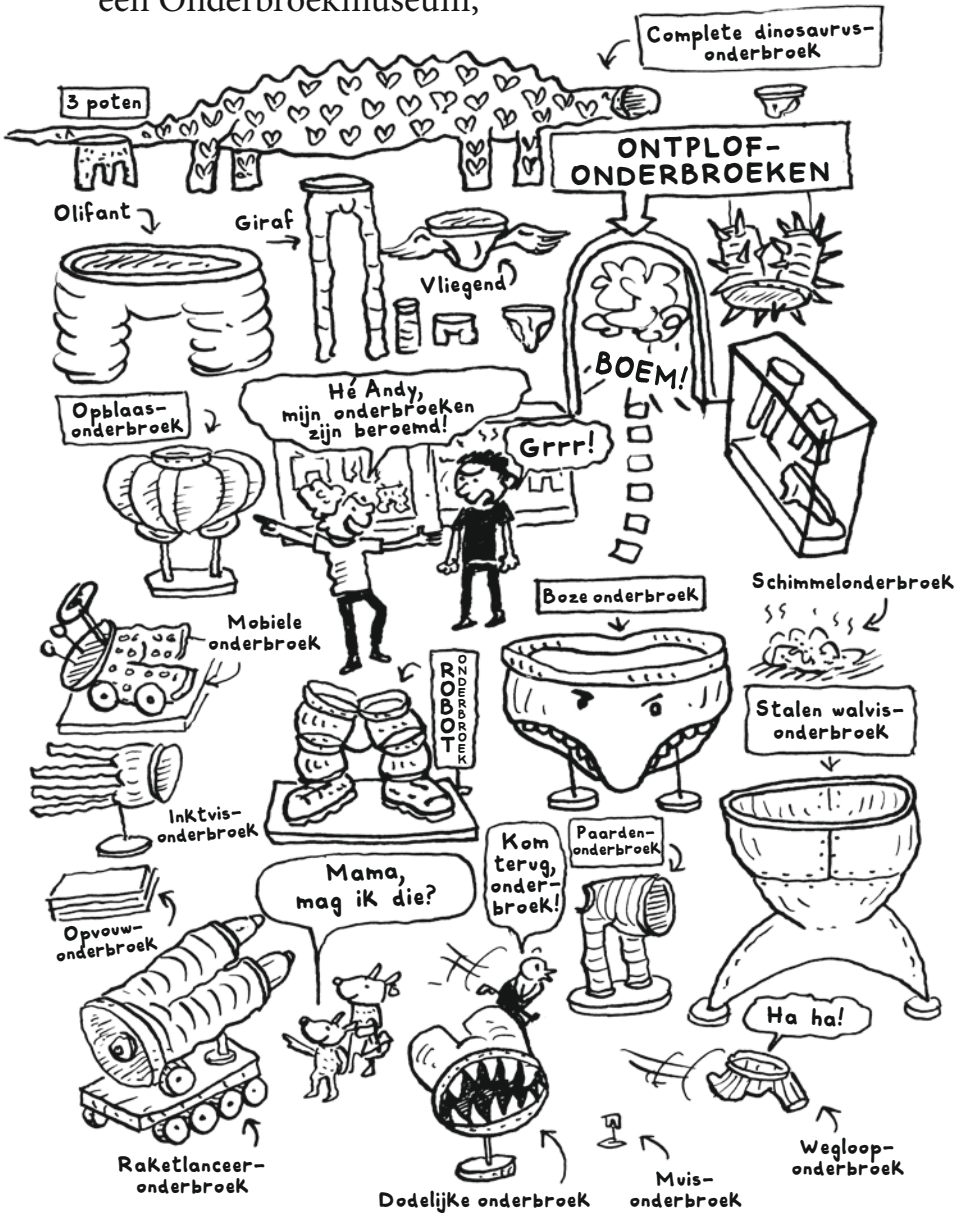 een Onderbroekmuseum,
Complete dinosaurus-
onderbroek
3 poten
ONTPLOF-
ONDERBROEKEN
Olifant
Giraf
Vliegend
BOEM!
Hé Andy,
mijn onderbroeken
zijn beroemd!
Grrr!
Opblaas-
onderbroek
Schimmelonderbroek
Boze onderbroek
Mobiele
onderbroek
ROBOT
ONDERBROEK
Stalen walvis-
onderbroek
Inktvis-
onderbroek
Kom
terug,
onder-
broek!
Paarden-
onderbroek
Mama,
mag ik die?
Opvouw-
onderbroek
Ha ha!
Raketlanceer-
onderbroek
Dodelijke onderbroek
Muis-
onderbroek
Wegloop-
onderbroek